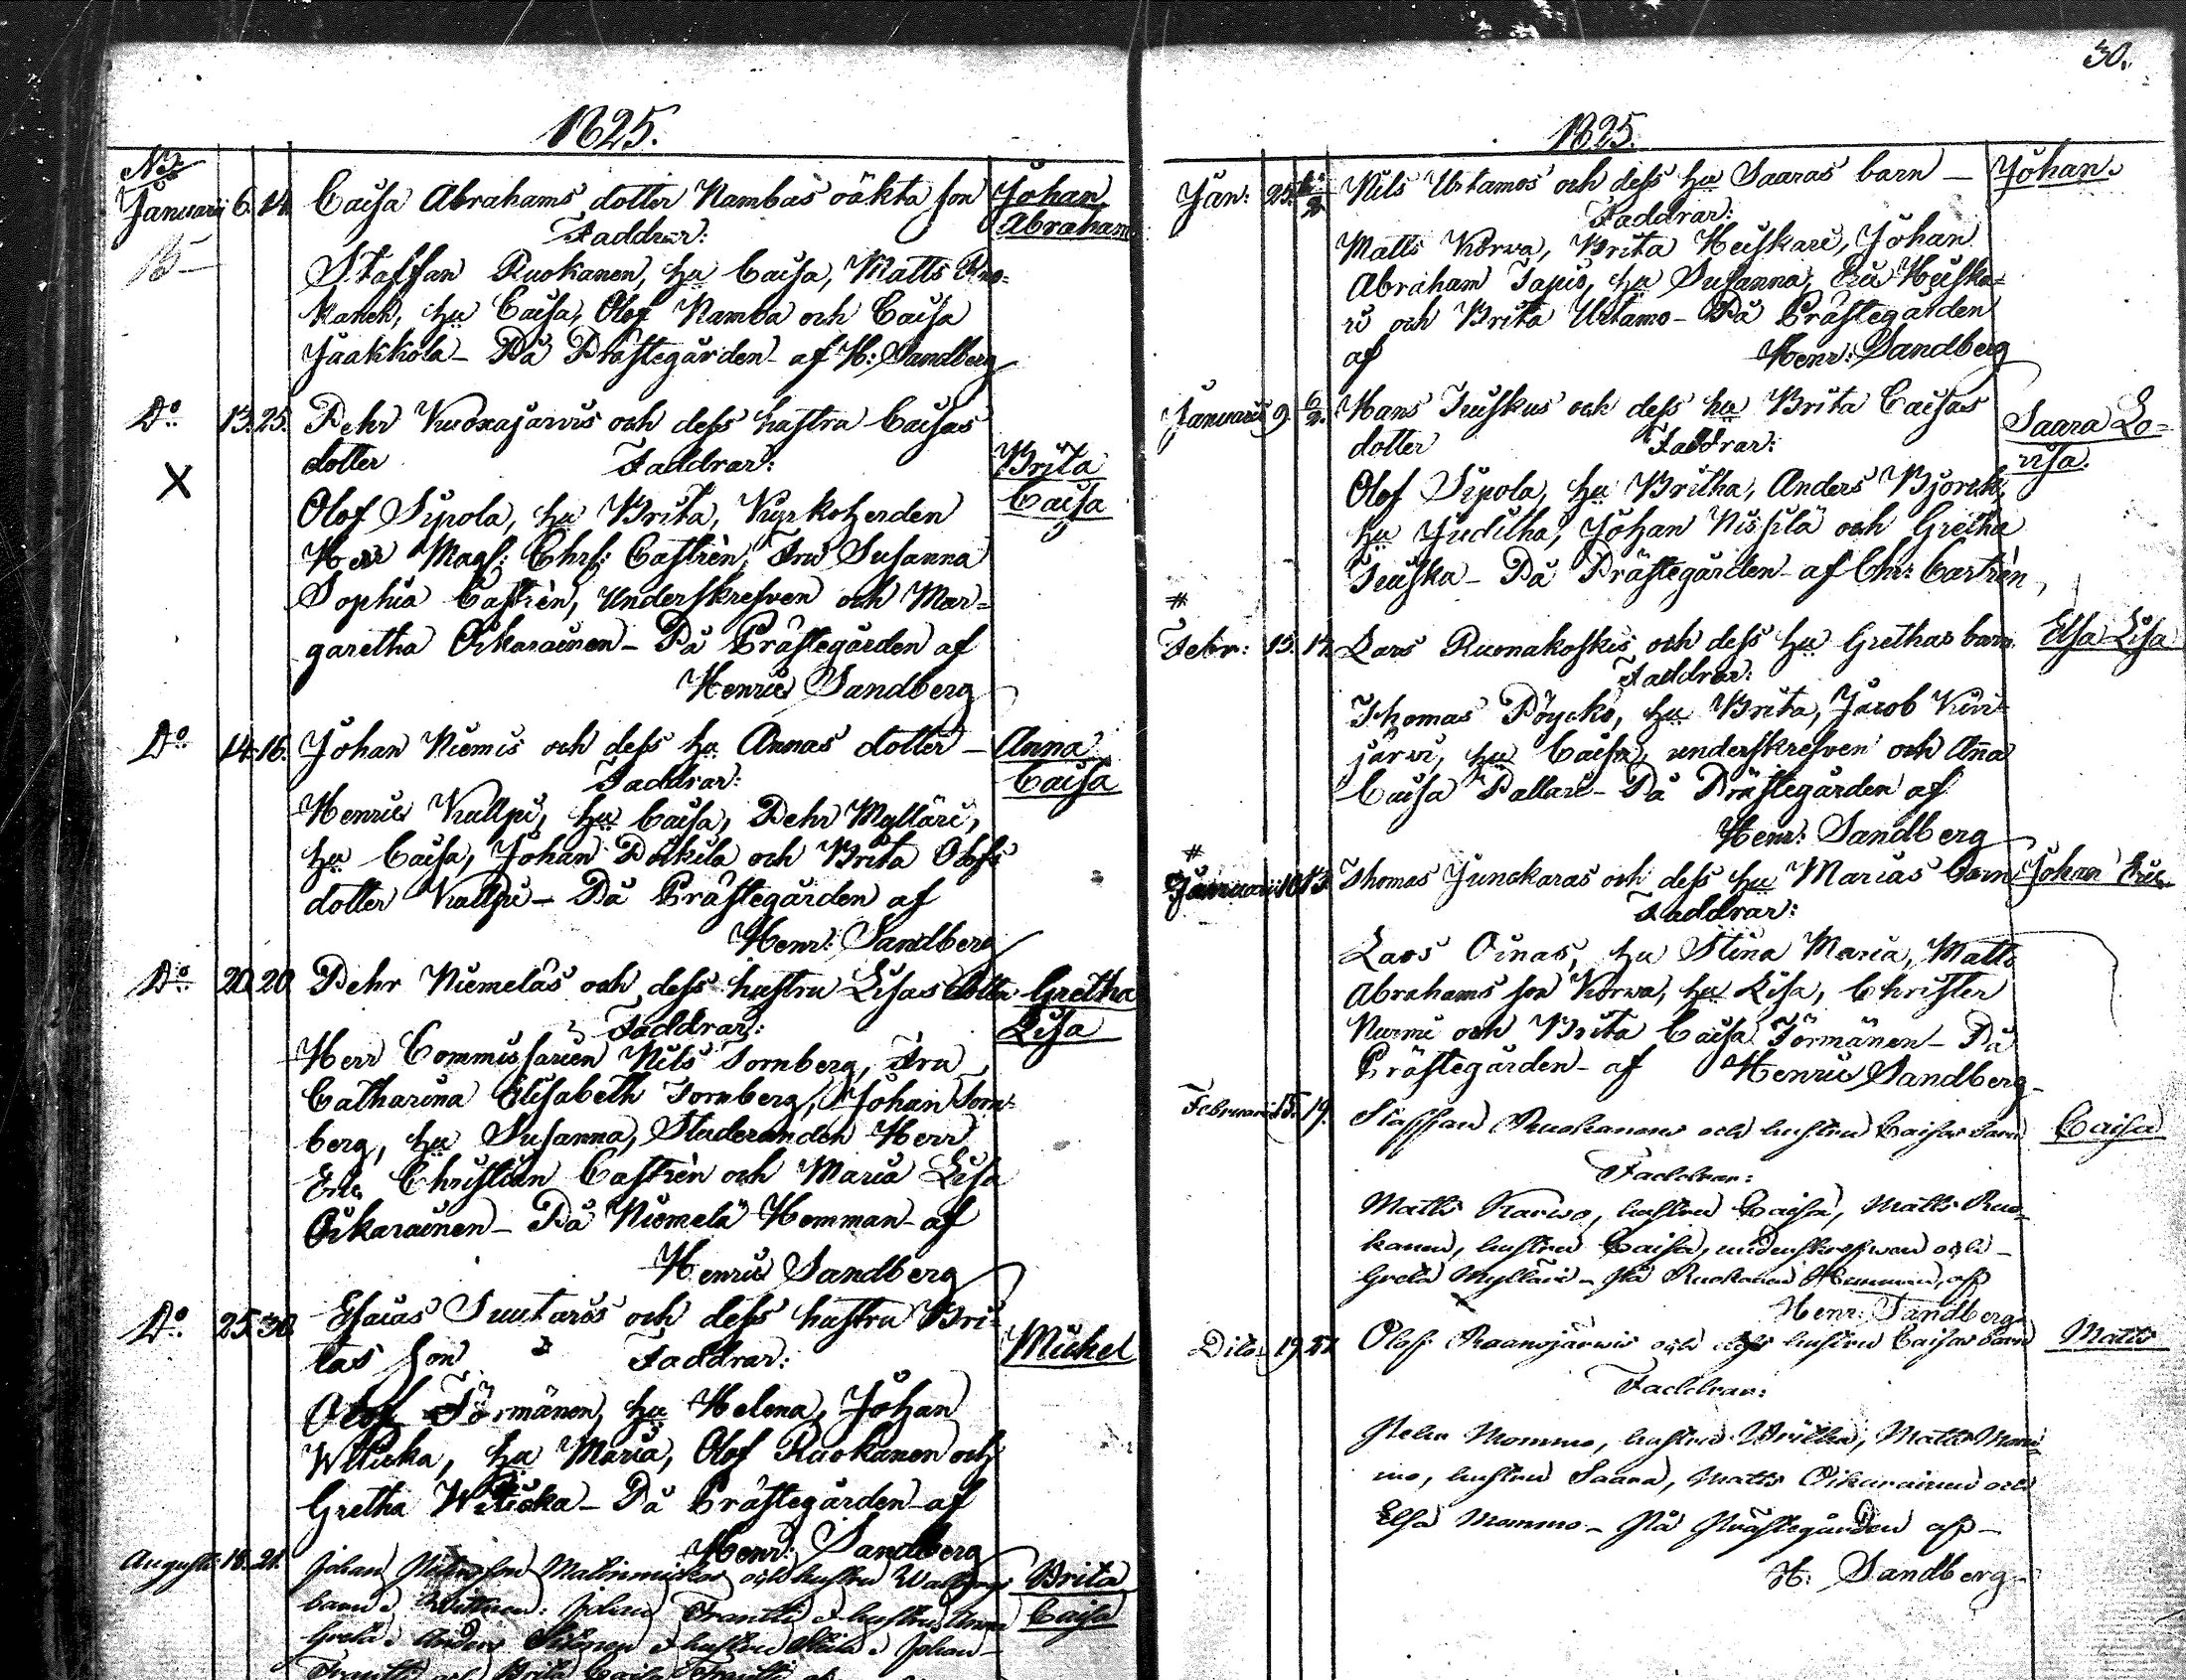 1825.
No
Januarii 6. 14. Caisa Abrahams dotter Nambas oäkta son Johan
Faddrar: Abraham
Staffan Ruokanen, hu Caisa, Matts Ruo-
kanen, hu Caisa, Olof Namba och Caisa
Jaakkola - På Prästegården - af H: Sandberg
Do 13. 25. Pehr Kuoxajärvis och dess hustru Caisas
dotter Faddrar: Brita
Olof Sipola, hu Brita, Kyrkoherden Caisa
Herr Mag: Chr: Castrèn, Fru Susanna
Sophia Castrèn, Underskrefven och Mar-
garetha Oikarainen - På Prästegården af
Henric Sandberg
Do 14. 16. Johan Niemis och dess hu Annas dotter - Anna
Faddrar: Caisa
Henric Kallpi, hu Caisa, Pehr Mylläri,
hu Caisa, Johan Poikila och Brita Olofs
dotter Kallpi - På Prästegården af
Henr: Sandberg
Do 20. 20. Pehr Niemeläs och dess hustru Lisas dotter Gretha
Faddrar: Lisa
Herr Commissarien Nils Tornberg, Fru
Catharina Elisabeth Tornberg, Johan Torn-
berg, hu Susanna, Studeranden Herr
Eric Christian Castrèn och Maria Lisa
Oikarainen - På Niemelä Hemman - af
Henric Sandberg
Do 25. 30. Esaias Suutaris och dess hustru Bri-
tas son Faddrar: Mickel
Olof Törmänen, hu Helena, Johan
Witicka, hu Maria, Olof Ruokanen och
Gretha Witicka - På Prästegården af
Henr: Sandberg
Augusti 18. 21. Johan och hustru Brita
barn Johan Frantti hustru Anna Caisa
Greta Anders hustru Johan
Frantti och Brita Caisa Frantti
30.
1825.
Jan: 25. 6/2 Nils Urtamos och dess hu Saaras barn - Johan.
Faddrar:
Matts Korva, Brita Heiskari, Johan
Abraham Tapio, hu Susanna, Eric Heiska-
ri och Brita Urtamo - På Prästegården
af Henr: Sandberg
Januarii 9. 6/2. Hans Juuskus och dess hu Brita Caisas
dotter Faddrar: Saara Lo-
visa.
Olof Sipola, hu Britha, Anders Björck,
hu Juditha, Johan Nissilä och Gretha
Juuska - På Prästegården - af Chr: Castrèn,
#
Febr: 13. 14. Lars Ruonakoskis och dess hu Grethas barn Elsa Lisa
Faddrar:
Thomas Pöycko, hu Brita, Jacob Kivi-
järvi, hu Caisa, underskrefven och Anna
Caisa Pallari - På Prästegården af
Henr: Sandberg
#
Januarii 10. 13. Thomas Junckaras och dess hu Marias barn Johan Eric
Faddrar:
Lars Oinas, hu Stina Maria, Matts
Abrahams son Korva, hu Lisa, Christer
Nurmi och Brita Caisa Törmänen - På
Prästegården - af Henric Sandberg -
Februarii 15. 19. Staffan Ruokanens och hustru Caisas barn Caisa
Faddrar:
Matts Karwo, hustru Caisa, Matts Ruo-
kanen, hustru Caisa, underskrefwen och -
Greta Mylläri - På Ruokanen Hemman, af
Henr: Sandberg
Dito 19. 27. Olof Raanojärwis och dess hustru Caisas barn Matts
Faddrar:
Pehr Mommo, hustru Britha, Matts Mom-
mo, hustru Saara, Matts Oikarainen och
Elsa Mommo - På Prästegården af -
H: Sandberg -